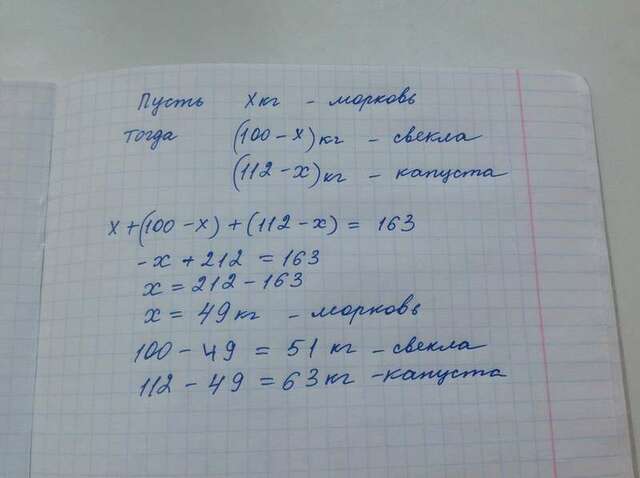 Пусть x кг - морковь
тогда (100 - x) кг - свекла
(112 - x) кг - капуста
x + (100 - x) + (112 - x) = 163
- x + 212 = 163
x = 212 - 163
x = 49 кг - морковь
100 - 49 = 51 кг - свекла
112 - 49 = 63 кг - капуста